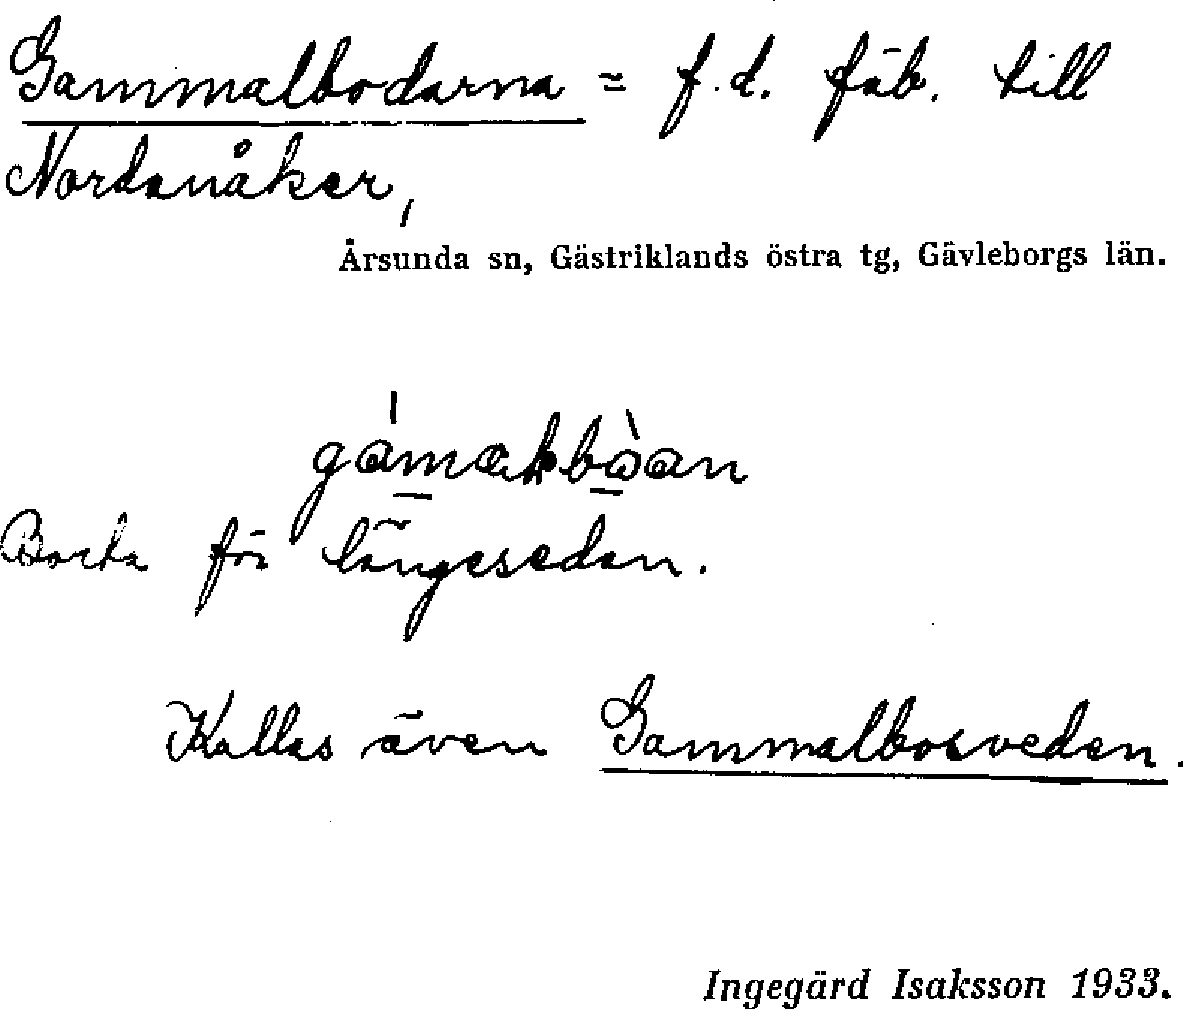 Gammalbodarna = f.d. fäb. till
Nordanåker,
Årsunda sn, Gästriklands östra tg, Gävleborgs län.
Borta för längesedan.
Kallas även Gammalbosveden.
Ingegärd Isaksson 1933.